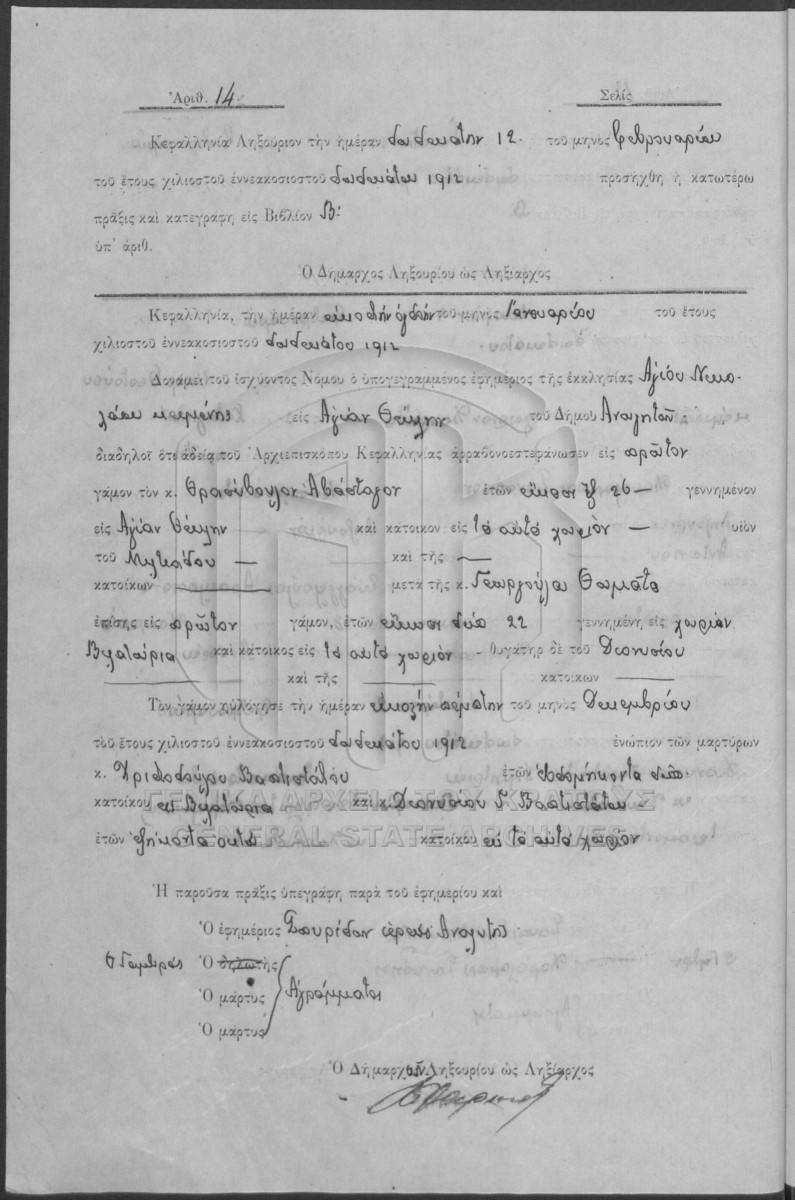 Ἀριθ. 14 Σελὶς
Κεφαλληνία Ληξούριον τὴν ἡμέραν δωδεκάτην 12 τοῦ μηνὸς Φεβρουαρίου
τοῦ ἔτους χιλιοστοῦ ἐννεακοσιοστοῦ δωδεκάτου 1912 προσήχθη ἡ κατωτέρω
πρᾶξις καὶ κατεγράφη εἰς Βιβλίον Β'
ὑπ' ἀριθ.
Ὁ Δήμαρχος Ληξουρίου ὡς Ληξίαρχος
Κεφαλληνία, τὴν ἡμέραν εἰκοστὴν ὀγδόην τοῦ μηνὸς Ἰανουαρίου τοῦ ἔτους
χιλιοστοῦ ἐννεακοσιοστοῦ δωδεκάτου 1912
Δυνάμει τοῦ ἰσχύοντος Νόμου ὁ ὑπογεγραμμένος ἐφημέριος τῆς ἐκκλησίας Ἁγίου Νικο-
λάου εἰς Ἁγίαν Θέκλην τοῦ Δήμου Ἀνωγῆς
διαδηλοῖ ὅτι ἀδείᾳ τοῦ Ἀρχιεπισκόπου Κεφαλληνίας ἀρραβωνοεστεφάνωσεν εἰς πρῶτον
γάμον τὸν κ. Θρασύβουλον ἐτῶν εἴκοσι ἕξ 26 — γεννημένον
εἰς Ἁγίαν Θέκλην καὶ κάτοικον εἰς τὸ αὐτὸ χωρίον — υἱὸν
τοῦ Μιλτιάδου — καὶ τῆς —
κατοίκων — μετὰ τῆς κ. Γεωργούλα Θωμᾶτο
ἐπίσης εἰς πρῶτον γάμον, ἐτῶν εἴκοσι δύο 22 γεννημένη εἰς χωρίον
Βιλατώρια καὶ κάτοικος εἰς τὸ αὐτὸ χωρίον - θυγάτηρ δὲ τοῦ Διονυσίου
— καὶ τῆς — κατοίκων —
Τὸν γάμον ηὐλόγησε τὴν ἡμέραν εἰκοστὴν πέμπτην τοῦ μηνὸς Δεκεμβρίου
τοῦ ἔτους χιλιοστοῦ ἐννεακοσιοστοῦ δωδεκάτου 1912 ἐνώπιον τῶν μαρτύρων
κ. ἐτῶν ἑβδομήκοντα δύο
κατοίκου εἰς Βιλατώρια — καὶ κ. Διονυσίου Γ.
ΓΕΝΙΚΑ ΑΡΧΕΙΑ ΤΟΥ ΚΡΑΤΟΥΣ
GENERAL STATE ARCHIVES
ἐτῶν ἑξήκοντα ὀκτὼ κατοίκου εἰς τὸ αὐτὸ χωρίον
Ἡ παροῦσα πρᾶξις ὑπεγράφη παρὰ τοῦ ἐφημερίου καὶ
Ὁ ἐφημέριος Σπυρίδων ἱερεὺς
Ὁ Γαμβρὸς Ὁ δηλωτὴς
Ὁ μάρτυς Ἀγράμματοι
Ὁ μάρτυς
Ὁ Δήμαρχος Ληξουρίου ὡς Ληξίαρχος